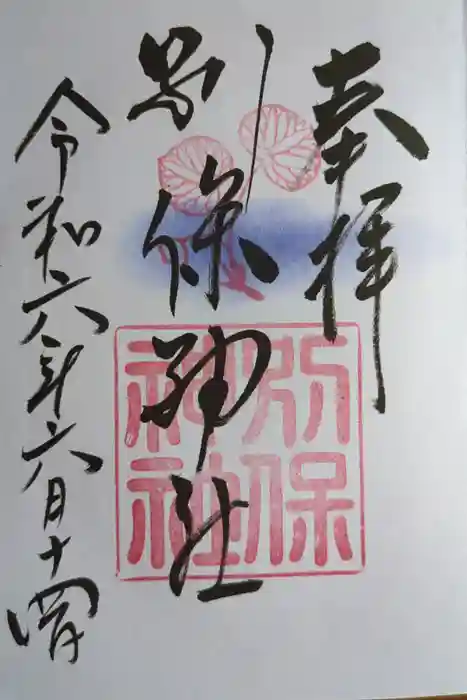 奉拝
別保神社
令和六年六月十四日
別保
神社